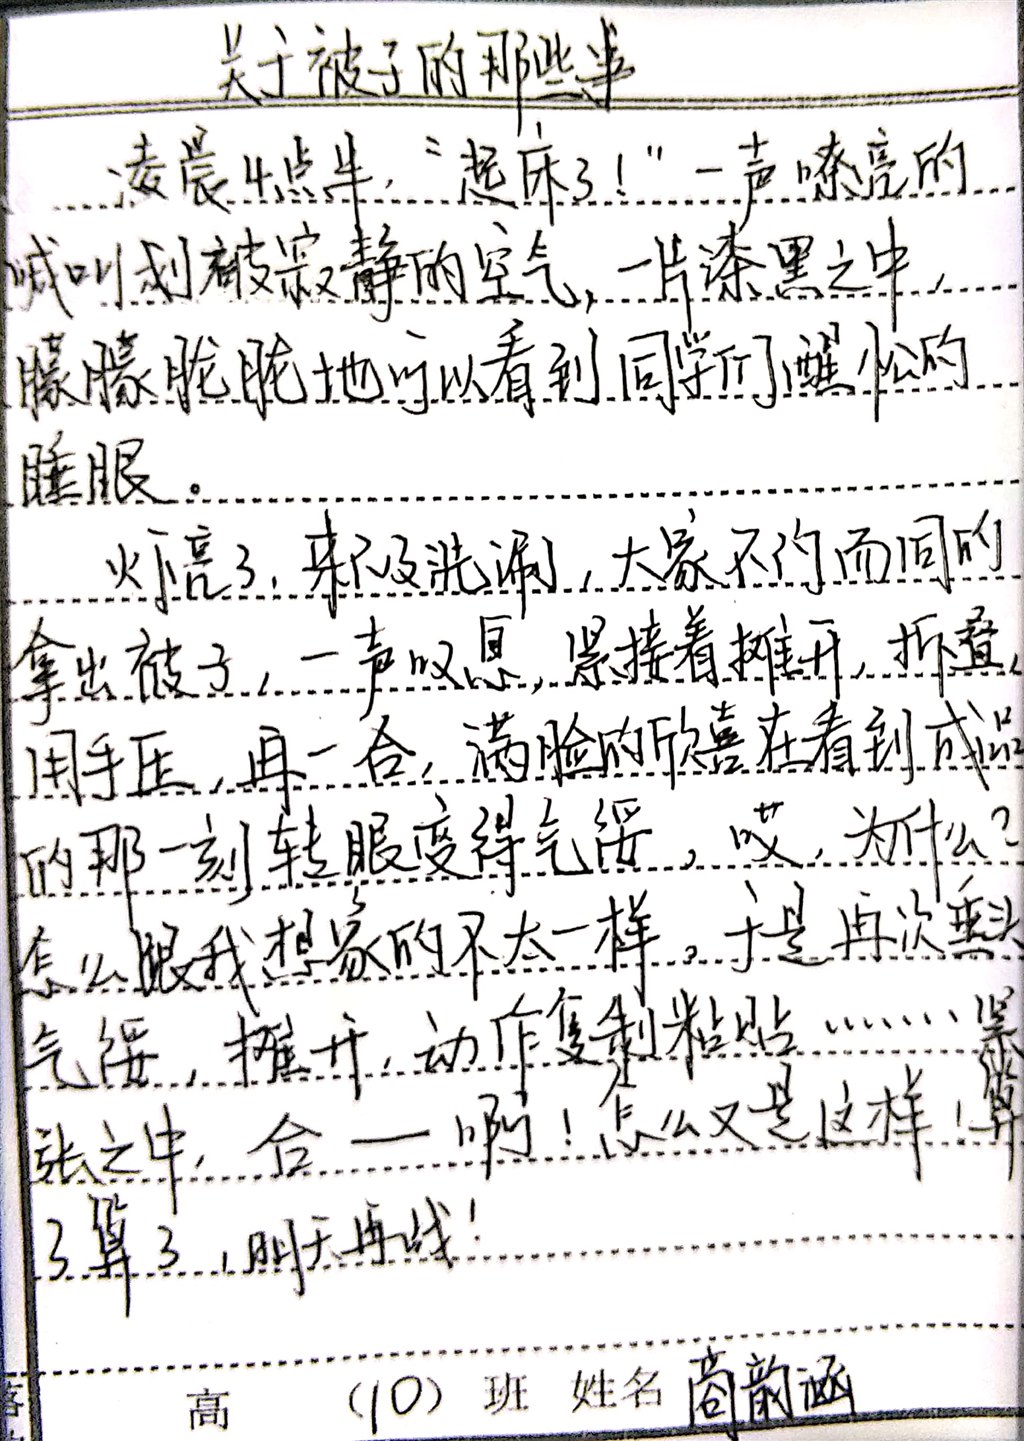 关于被子的那些事
凌晨4点半，“起床了！”一声嘹亮的
喊叫划被寂静的空气，一片漆黑之中，
朦朦胧胧地可以看到同学们醒忪的
睡眼。
灯亮了，来不及洗漱，大家不约而同的
拿出被子，一声叹息，紧接着摊开，折叠，
用手压，再一合，满脸的欣喜在看到成品
的那一刻转眼变得气馁，哎，为什么？
怎么跟我想象的不太一样。于是再次垂头
气馁，摊开，动作复制粘贴………紧
张之中，合——啊！怎么又是这样！算
了算了，明天再战！
高 （10）班 姓名 商韵涵